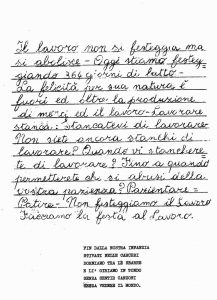 Il lavoro non si festeggia ma
si abolisce - Oggi stiamo festeg-
giando 364 giorni di lutto -
La felicità per sua natura, è
fuori ed oltre la produzione
di merci ed il lavoro-lavorare
stanca: stancatevi di lavorare.
Non siete ancora stanchi di
lavorare? Quando vi stanchere-
te di lavorare? Fino a quando
permetterete che si abusi della
vostra pazienza? Pazientare =
Patire - Non festeggiamo il Lavoro
Facciamo la festa al Lavoro.
FIN DALLA NOSTRA INFANZIA
PRIVATI NELLE CARCERI
DORMIAMO TRA LE SBARRE
E LI' GIRIAMO IN TONDO
SENZA SENTIR CANZONI
SENZA VEDERE IL MONDO.